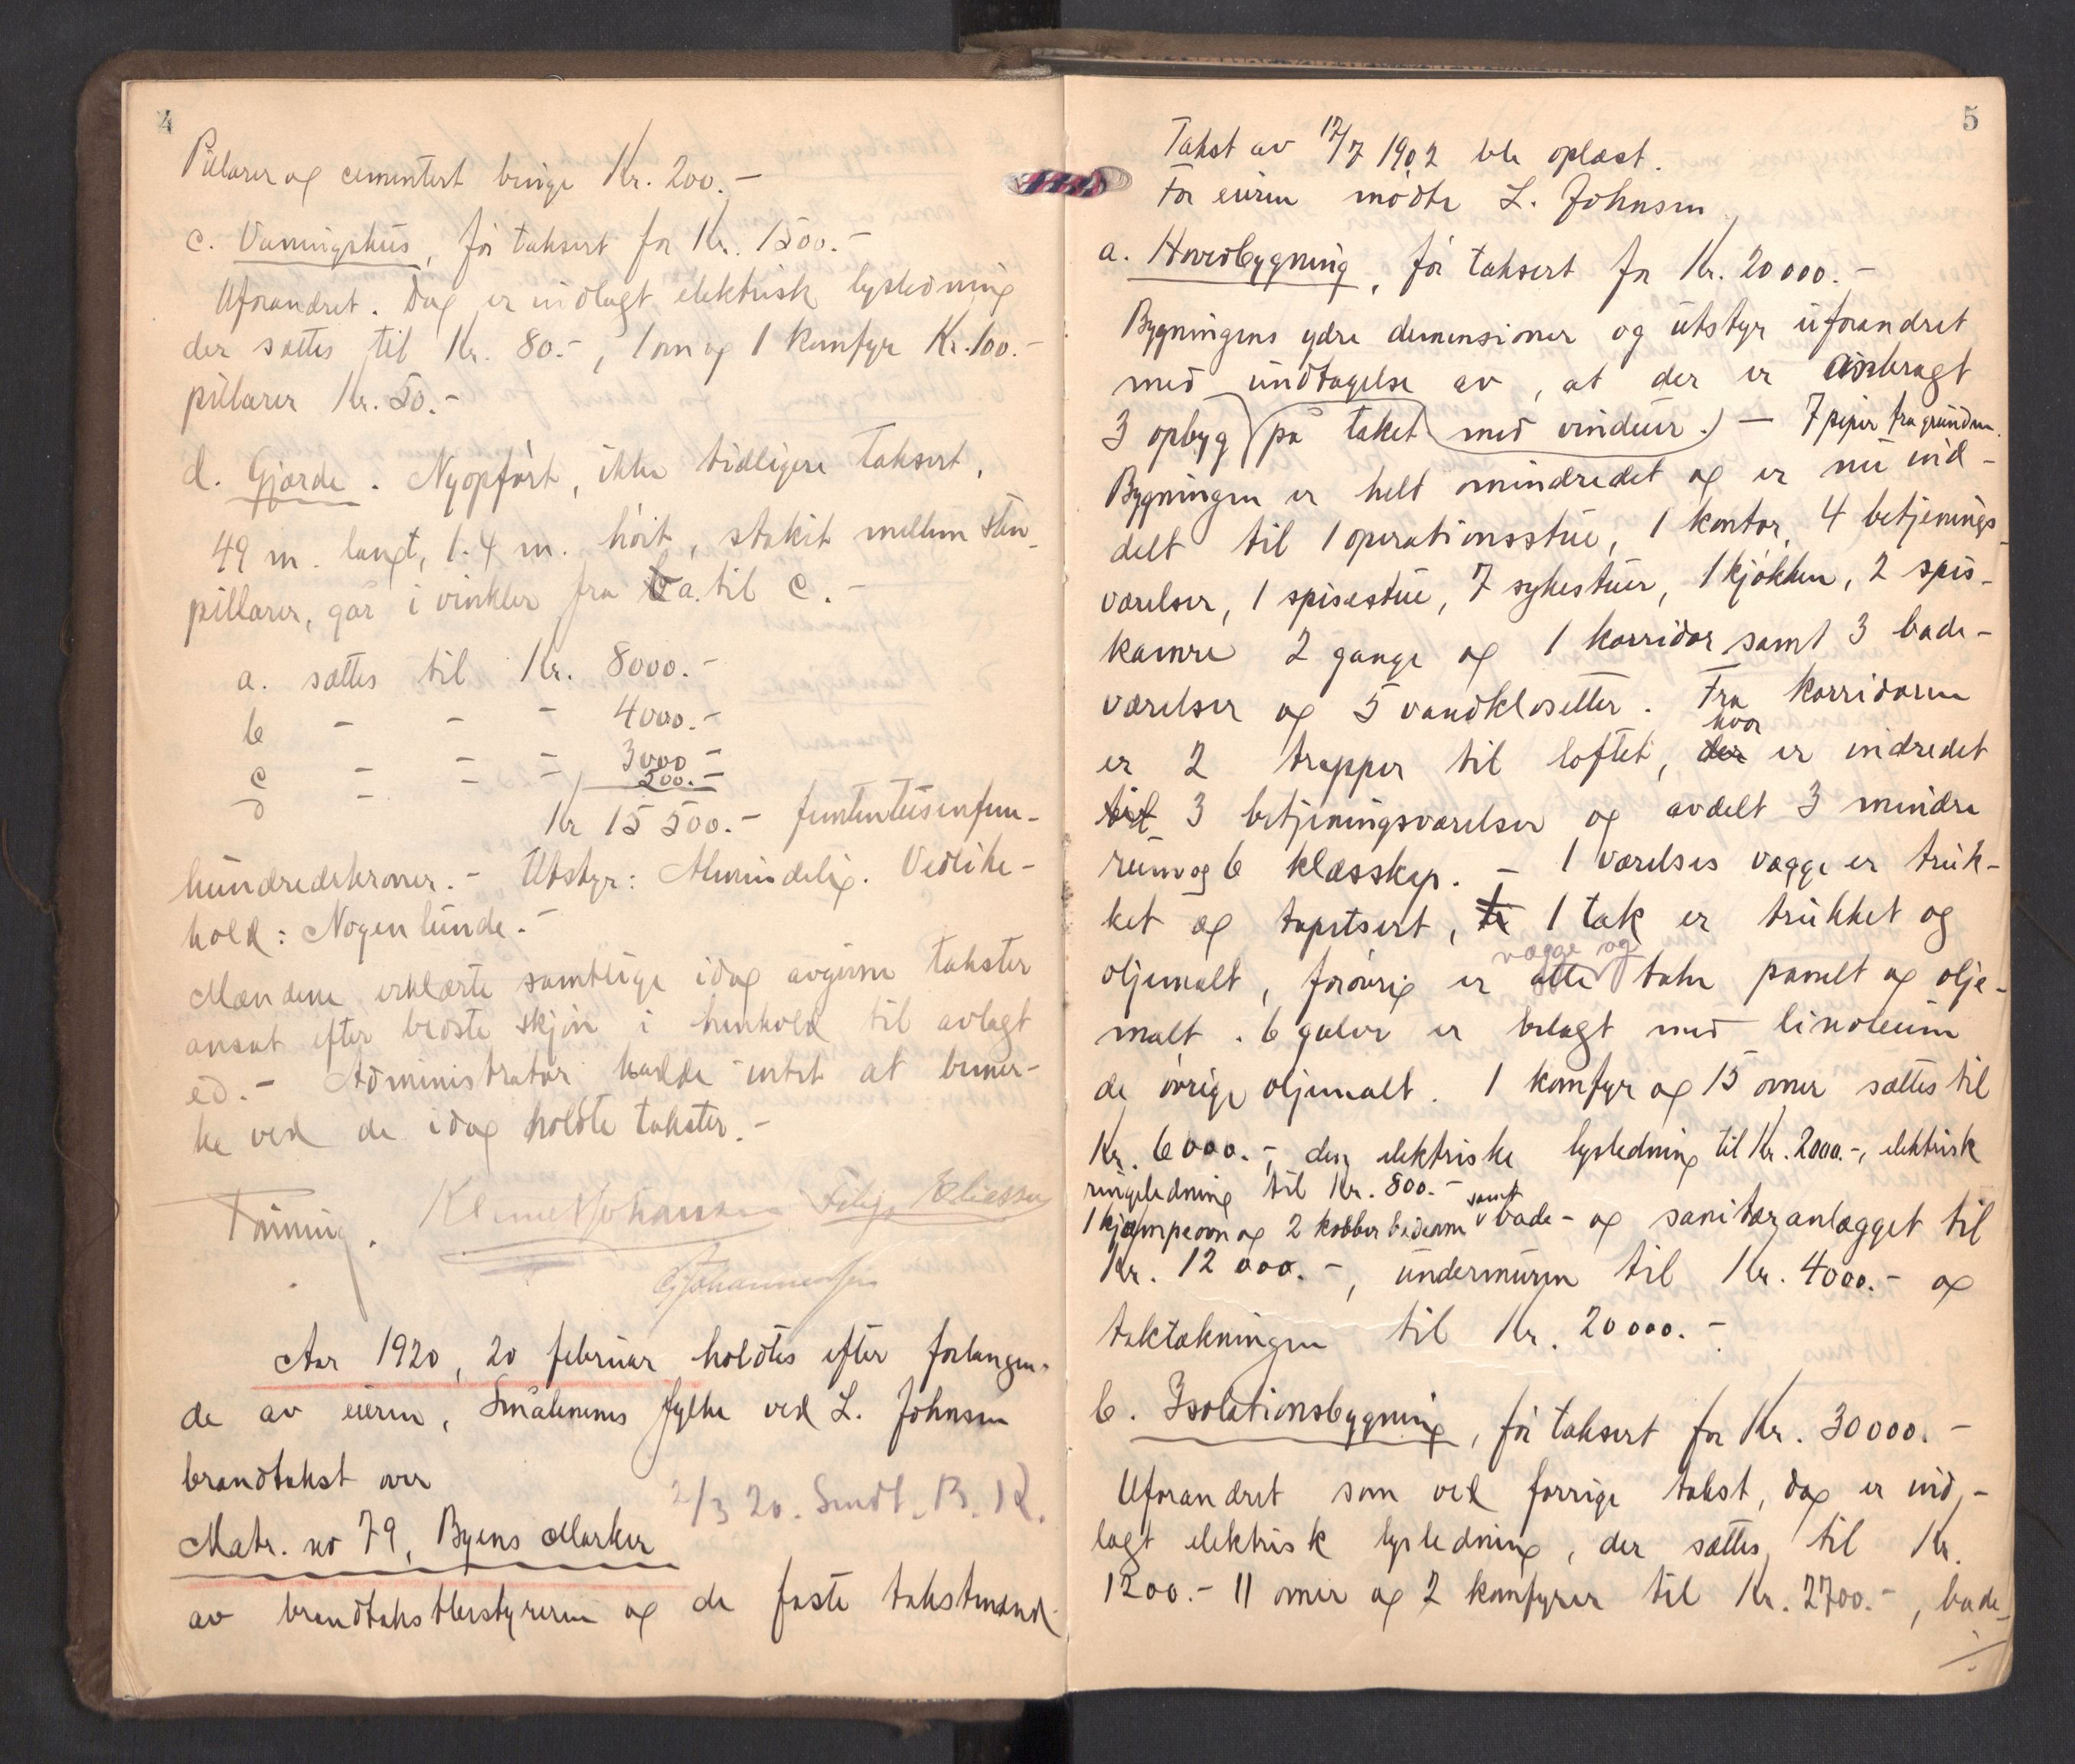 4
Pilarer og cementert binge Kr. 200.-
c. Vaaningshus, før taksert for Kr. 1500.-
Uforandret. Dog er indlagt elektrisk lysledning
der sættes til Kr. 80.-, 1 ovn og 1 komfyr Kr. 100.-
pillarer Kr. 50.-
d. Gjærde. Nyopført, ikke tidligere taksert,
49 m. langt, 1.4 m. høit, stakit mellem sten-
pillarer, går i vinkler fra a. til c.-
a. sættes til Kr. 8000.-
b - - - 4000.-
c - - - 3000.-
d - - - 500.-
Kr 15 500.- femtentusenfem-
hundredekroner.- Utstyr: Almindelig. Vedlike-
hold: Nogenlunde.-
Mændene erklærte samtlige idag avgivne takster
ansat efter bedste skjøn i henhold til avlagt
ed.- Administrator hadde intet at bemer-
ke ved de idag holdte takster.-
Klemet Johansen Filip Eliassen
Johannessen
Aar 1920, 20 februar holdtes efter forlangen-
de av eieren, Smålenenes fylke ved L. Johnsen
brandtakst over
2/3 20. Sendt. B. K.
Matr. no 79, Byens Marker
av brandtakstbestyreren og de faste takstmænd.
5
Takst av 17/7 1902 ble oplæst.
For eieren mødte L. Johnsen.
a. Hovedbygning, før taksert for Kr. 20000.-
Bygningens ydre demensioner og utstyr uforandret
med undtagelse av, at der er anbragt
3 opbyg på taket med vinduer.) - 7 piper fra grunden.
Bygningen er helt omindredet og er nu ind-
delt til 1 operationsstue, 1 kontor, 4 betjenings-
værelser, 1 spisestue, 7 sykestuer, 1 kjøkken, 2 spis-
kamre 2 gange og 1 korridor samt 3 bade-
værelser og 5 vandklosetter. Fra korridoren
hvor
er 2 trapper til loftet, der er indredet
til 3 betjeningsværelser og avdelt 3 mindre
rum og 6 klæsskap. - 1 værelses vægge er truk-
ket og tapetsert, 1 tak er trukket og
vægge og
oljemalt, forøvrig er alle take panelt og olje-
malt. 6 gulve er belagt med linoleum
de øvrige oljemalt. 1 komfyr og 15 ovner sættes til
Kr. 6000.-, den elektriske lysledning til Kr. 2000.-, elektrisk
ringeledning til Kr. 800.-
samt
1 kjæmpeovn og 2 kobber badeovne bade- og sanitæranlægget til
Kr. 12 000.-, undermuren til Kr. 4000.- og
taktækningen til Kr. 20000.-
b. Isolationsbygning, før taksert for Kr. 30000.-
Uforandret som ved forrige takst, dog er ind-
lagt elektrisk lysledning, der sættes til Kr.
1200.- 11 ovner og 2 komfyrer til Kr. 2700.-, bade-